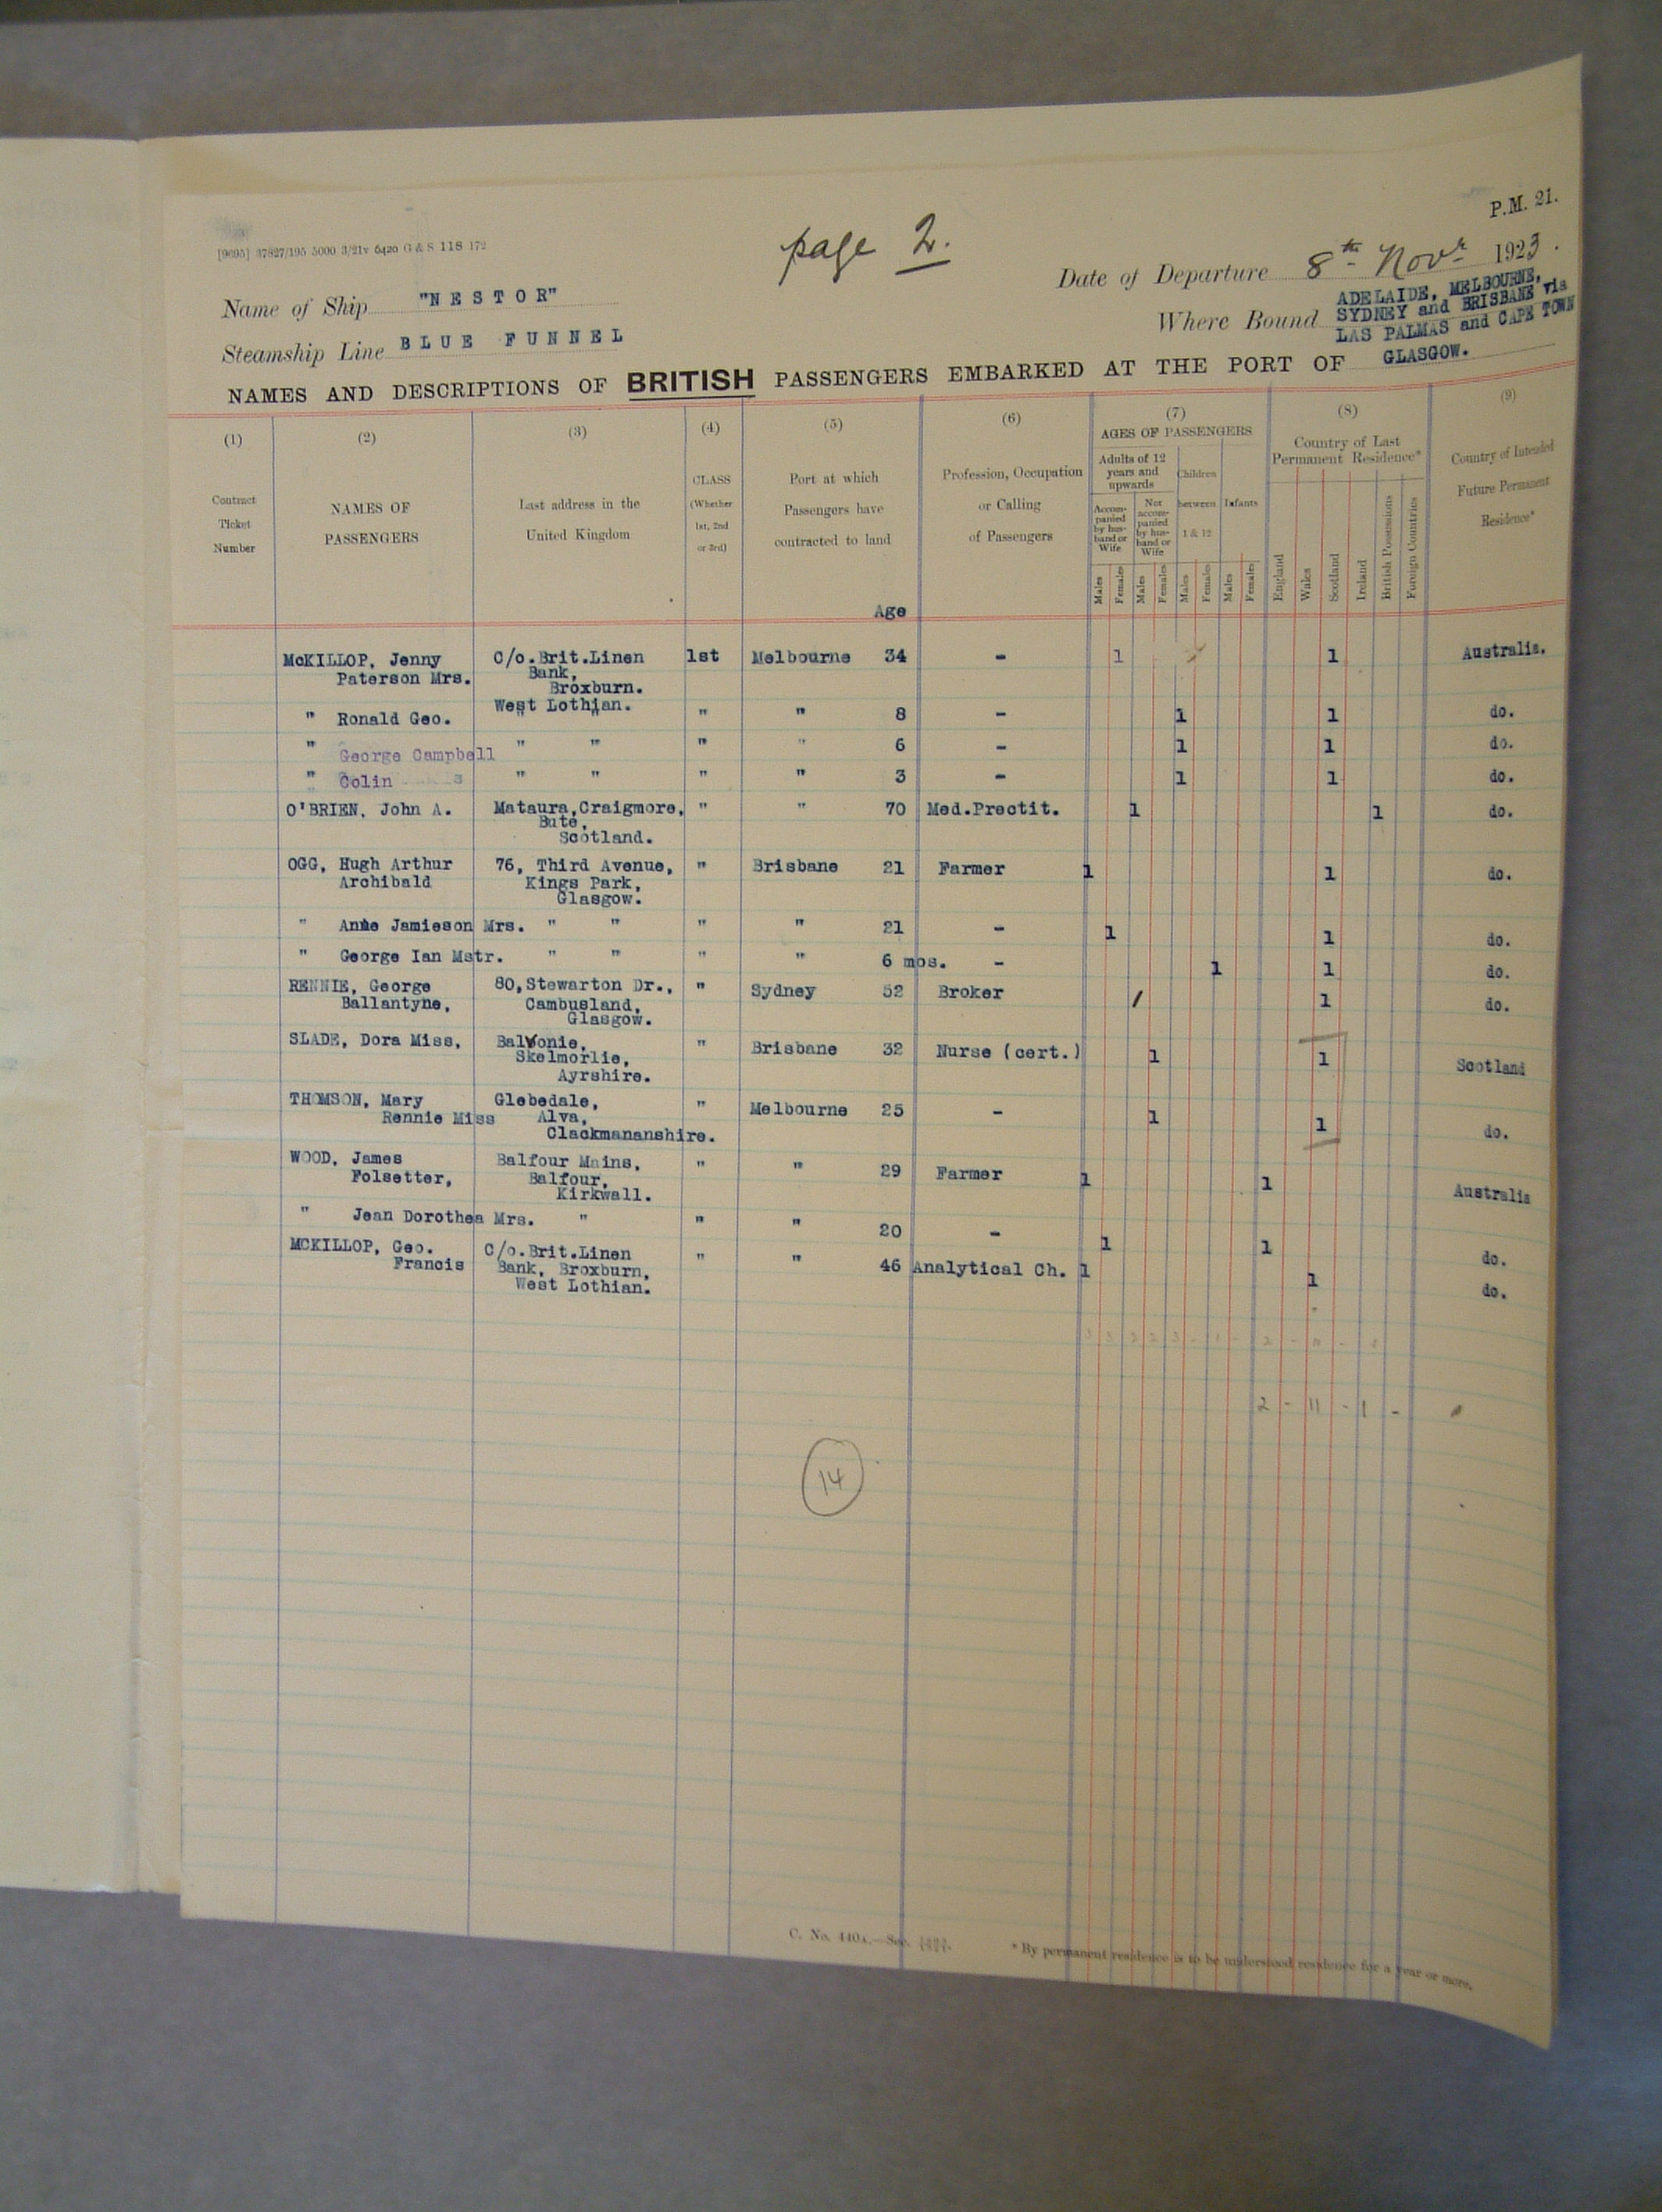 P.M. 21.
[9695] 37827/195 5000 3/21v 6420 G & S 118 172
page 2.
Date of Departure 8th Novr 1923.
Name of Ship "NESTOR"
Where Bound ADELAIDE, MELBOURNE,
SYDNEY and BRISBANE via
LAS PALMAS and CAPE TOWN
Steamship Line BLUE FUNNEL
NAMES AND DESCRIPTIONS OF BRITISH PASSENGERS EMBARKED AT THE PORT OF GLASGOW.
(1) (2) (3) (4) (5) (6) (7) (8) (9)
Contract Ticket Number
NAMES OF PASSENGERS
Last address in the United Kingdom
CLASS (Whether 1st, 2nd or 3rd)
Port at which Passengers have contracted to land
Age
Profession, Occupation or Calling of Passengers
AGES OF PASSENGERS
Adults of 12 years and upwards
Accompanied by husband or Wife
Not accompanied by husband or Wife
Children between 1 & 12
Infants
Males Females Males Females Males Females Males Females
Country of Last Permanent Residence*
England Wales Scotland Ireland British Possessions Foreign Countries
Country of Intended Future Permanent Residence*
McKILLOP, Jenny C/o.Brit.Linen 1st Melbourne 34 - 1 1 Australia.
Paterson Mrs. Bank,
Broxburn.
West Lothian.
" Ronald Geo. " " " " 8 - 1 1 do.
" George Campbell " " " " 6 - 1 1 do.
" Colin " " " " 3 - 1 1 do.
O'BRIEN, John A. Mataura,Craigmore, " " 70 Med.Prectit. 1 1 do.
Bute,
Scotland.
OGG, Hugh Arthur 76, Third Avenue, " Brisbane 21 Farmer 1 1 do.
Archibald Kings Park,
Glasgow.
" Anne Jamieson Mrs. " " " " 21 - 1 1 do.
" George Ian Mstr. " " " " 6 mos. - 1 1 do.
RENNIE, George 80,Stewarton Dr., " Sydney 52 Broker / 1 do.
Ballantyne, Cambusland,
Glasgow.
SLADE, Dora Miss, Balvonie, " Brisbane 32 Nurse (cert.) 1 1 Scotland
Skelmorlie,
Ayrshire.
THOMSON, Mary Glebedale, " Melbourne 25 - 1 1 do.
Rennie Miss Alva,
Clackmananshire.
WOOD, James Balfour Mains, " " 29 Farmer 1 1 Australia
Folsetter, Balfour,
Kirkwall.
" Jean Dorothea Mrs. " " " 20 - 1 1 do.
MCKILLOP, Geo. C/o.Brit.Linen " " 46 Analytical Ch. 1 1 do.
Francis Bank, Broxburn,
West Lothian.
2 - 11 - 1 -
14
C. No. 440A.—Sec.
* By permanent residence is to be understood residence for a year or more.